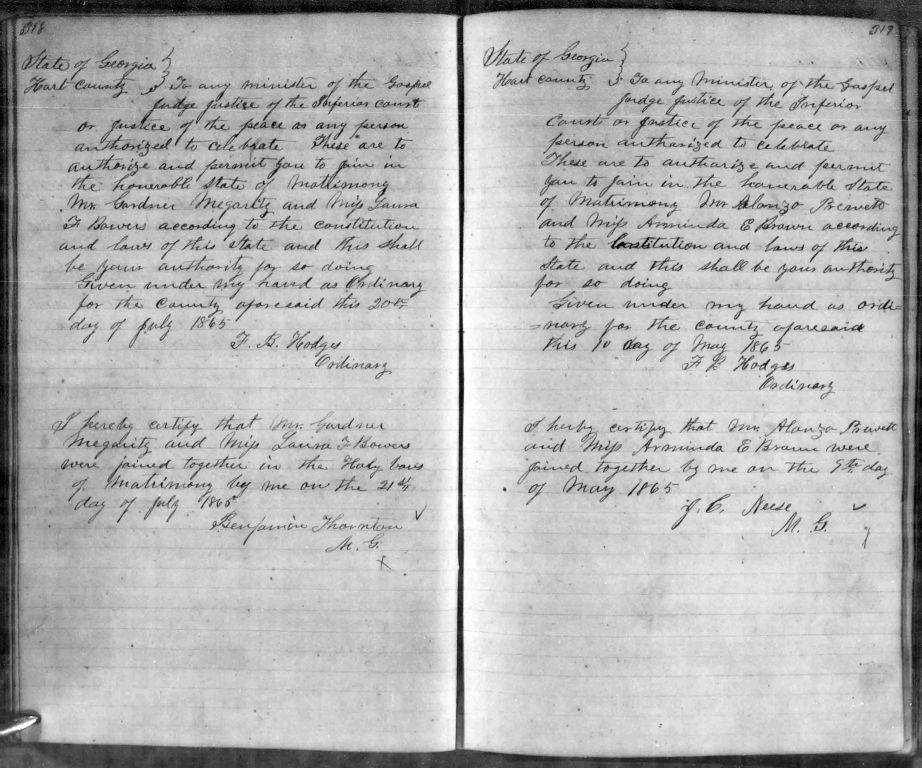 318
State of Georgia }
Hart County } To any minister of the Gospel
Judge Justice of the Inferior court
or Justice of the peace or any person
authorized to celebrate These are to
authorize and permit you to join in
the honerable State of Matrimony
Mr. Gardner Megaritz and Miss Laura
F Bowers according to the constitution
and laws of this state and this shall
be your authority for so doing
Given under my hand as Ordinary
for the County aforesaid this 20th
day of July 1865
F. B. Hodges
Ordinary
I hereby certify that Mr. Gardner
Megaritz and Miss Laura F Bowers
were joined together in the Holy bans
of Matrimony by me on the 21st
day of July 1865
Benjamin Thornton
M. G.
319
State of Georgia }
Hart County } To any Minister of the Gospel
Judge Justice of the Inferior
Court or Justice of the peace or any
person autharized to celebrate
These are to autharize and permit
you to join in the honerable State
of Matrimony Mr Alonzo Prewett
and Miss Arminda E Brown according
to the Constitution and laws of this
State and this shall be your authority
for so doing
Given under my hand as ordi-
=nary for the county aforesaid
this 10 day of May 1865
F B Hodges
Ordinary
I herby certify that Mr. Alonzo Prewett
and Miss Arminda E Brown were
joined together by me on the 9th day
of May 1865
J. C. Neese
M. G.